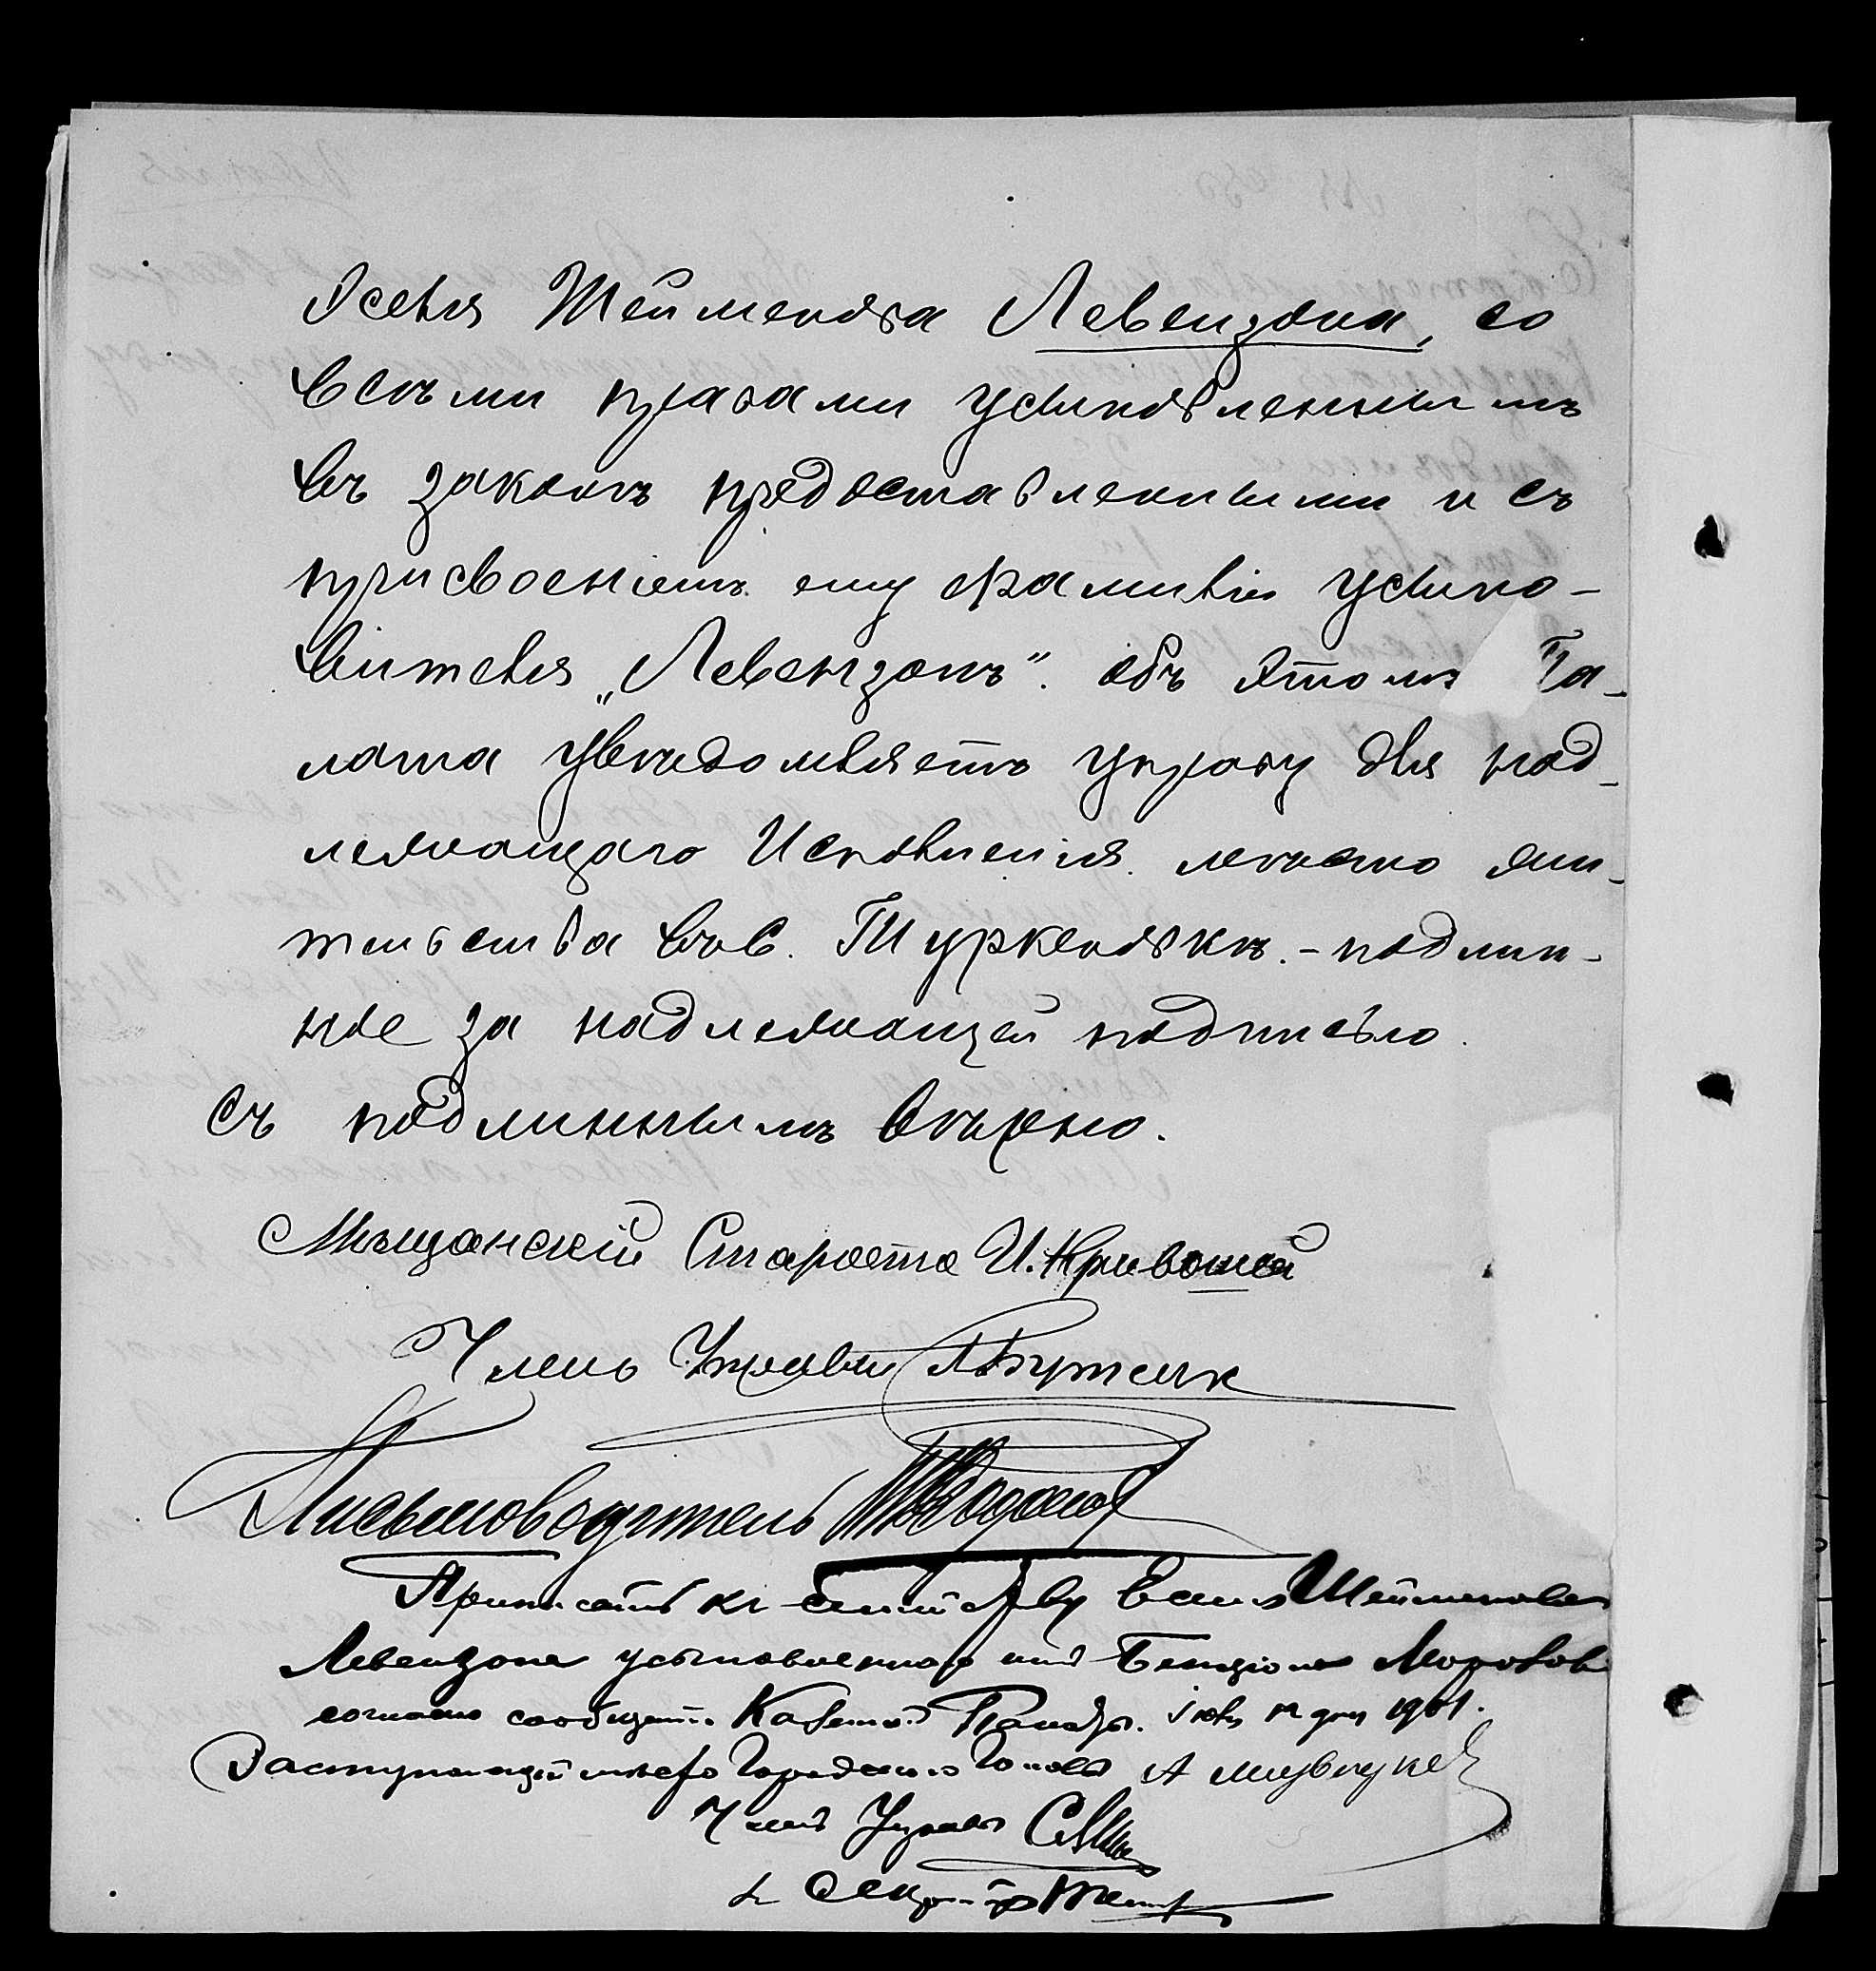 Іоселя Шейменова Левензона, со
всѣми правами усыновленнымъ
въ законѣ предоставленными и съ
присвоеніемъ ему фамиліи усыно-
вителя „Левензонъ". объ этомъ Па-
лата увѣдомляетъ управу для над-
лежащаго Исполненія. мѣсто жи-
тельства въ С. Туркеновкѣ. - подлин-
ное за надлежащей подписью.
Съ подлиннымъ вѣрно.
Мѣщанскій Староста И. Кривошей
Членъ Управы
Письмоводитель
Приписать къ семейству Шейменова
Левензона усыновленнаго имъ Бенціона
согласно сообщенію Казенной Палаты. Іюня 12 дня 1901.
Заступающій мѣсто Городского Головы А
Членъ Управы
Секретарь